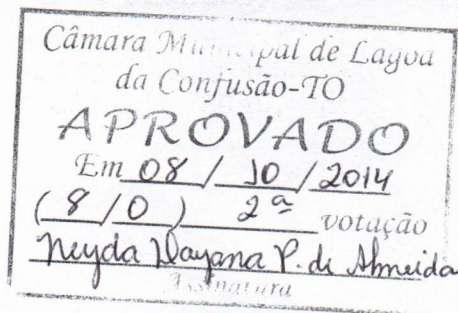 Câmara Municipal de Lagoa
da Confusão-TO
APROVADO
Em 08 / 10 / 2014
( 8 / 0 ) 2ª votação
Neyda Dayana P. de Almeida
Assinatura